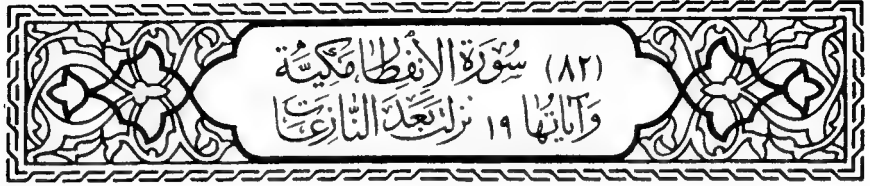 (٨٢) سُورَةُ الاِنْفِطَارِ مَكِّيَّة
وَآيَاتُهَا ١٩ نَزَلَتْ بَعْدَ النَّازِعَاتِ